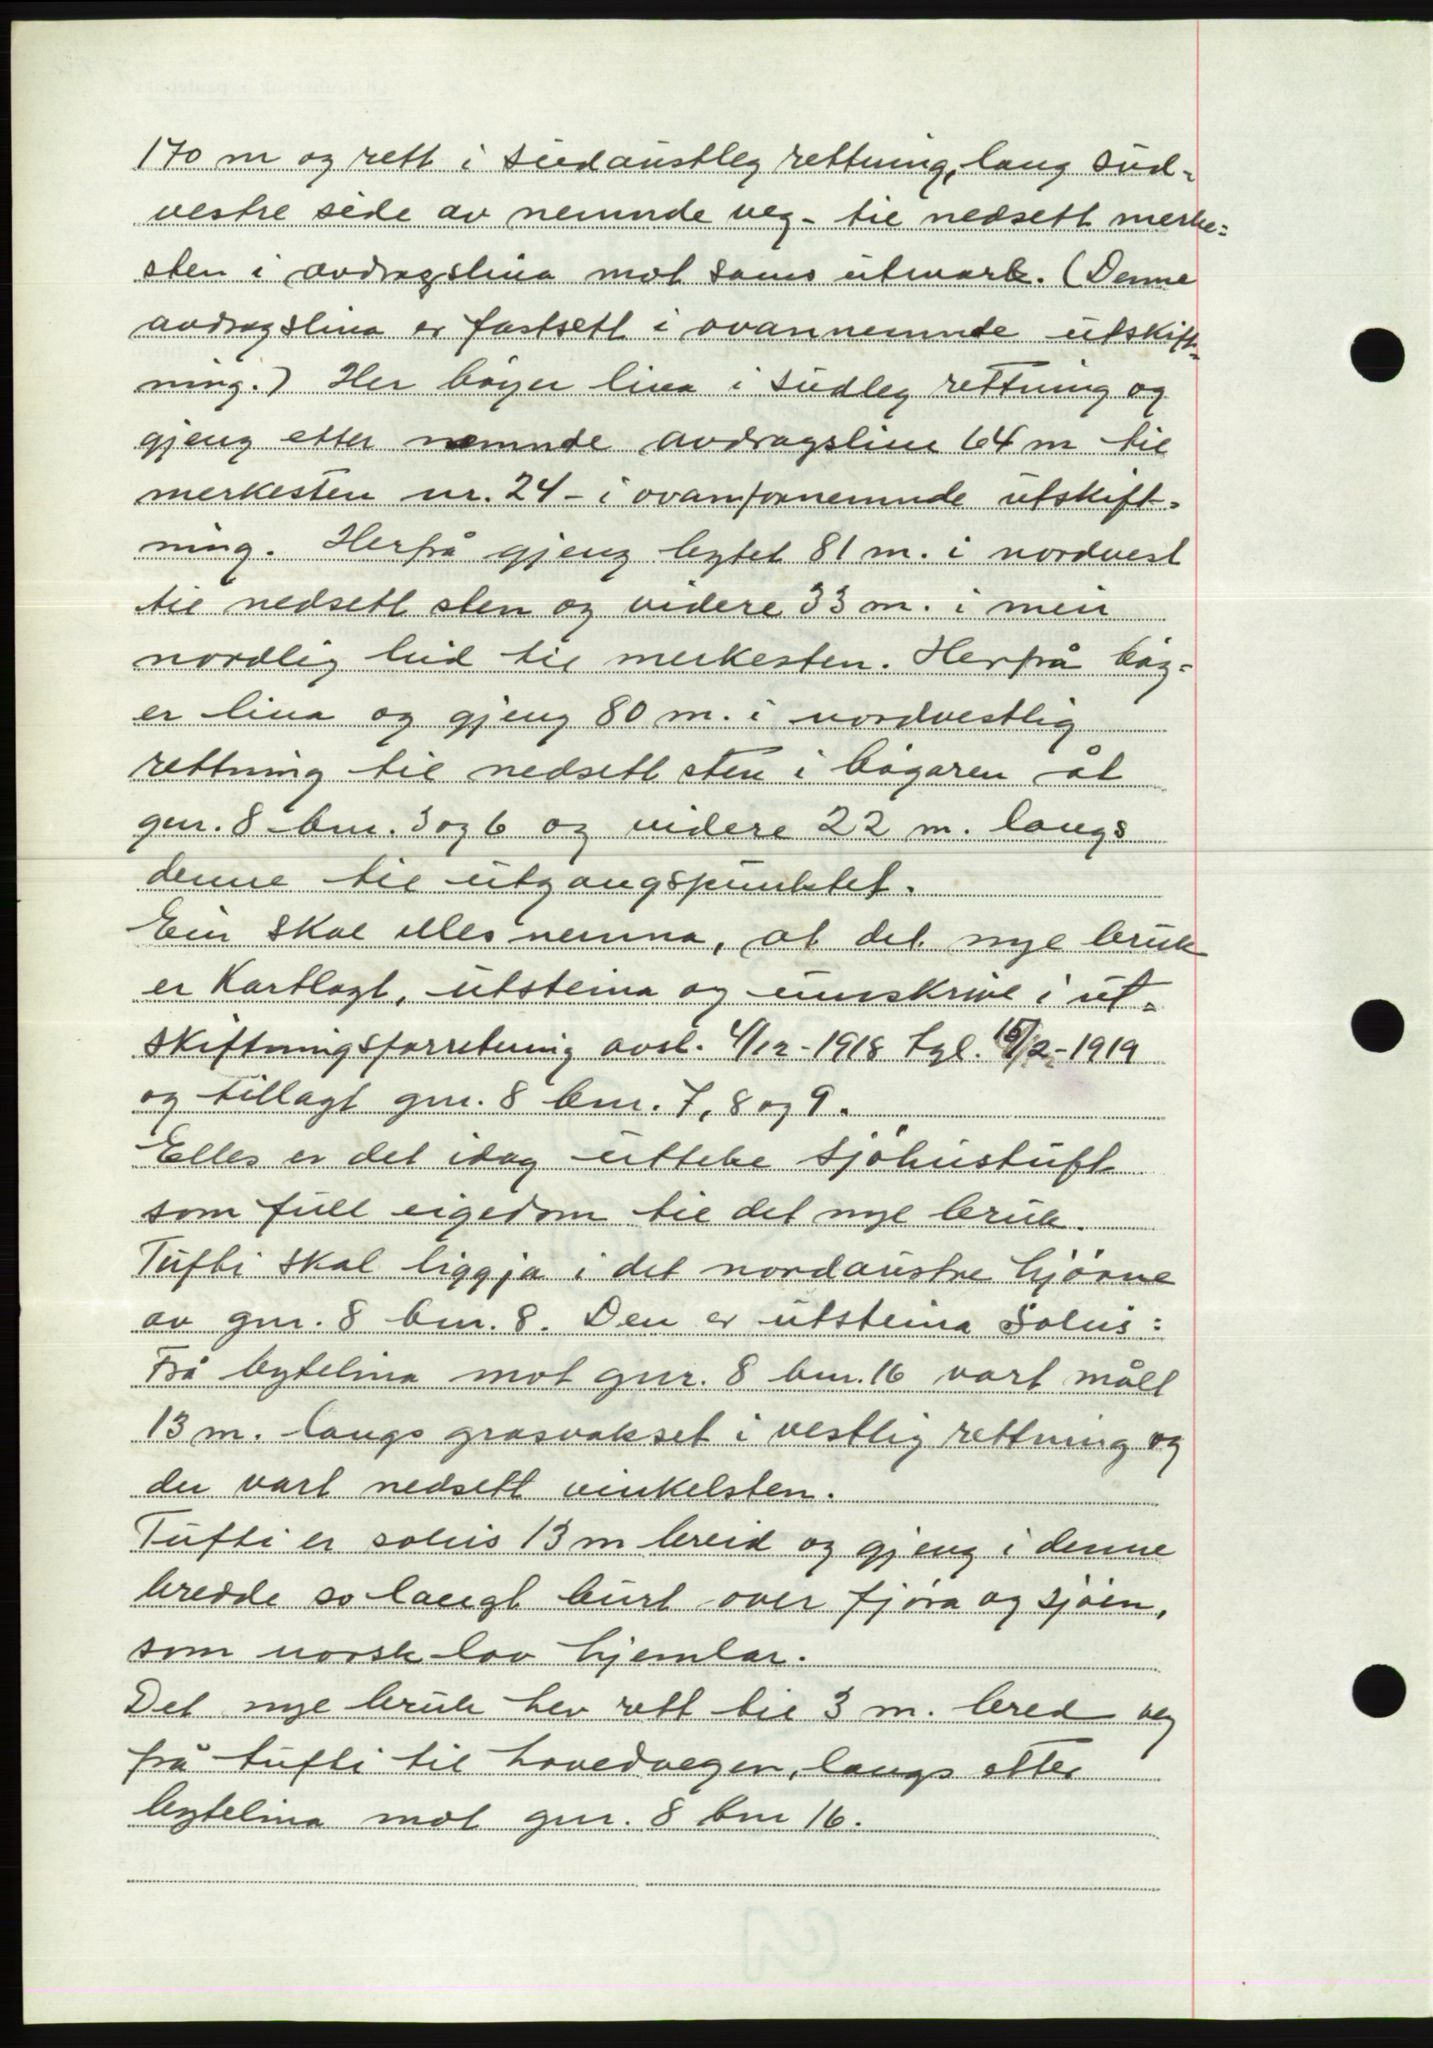 170 m og rett i sudaustleg rettning, lang sud-
vestre side av nemnde veg - til nedsett merke-
sten i avdragslina mot sams utmark. (Denne
avdragslina er fastsett i ovannemnde utskift-
ning.) Her bøyer lina i sudleg rettning og
gjeng etter nemnde avdragsline 64 m til
merkesten nr. 24 - i ovanfornemnde utskift-
ning. Herfrå gjeng bytet 81 m. i nordvest
til nedsett sten og videre 33 m. i meir
nordlig leid til merkesten. Herfrå bøy-
er lina og gjeng 80 m. i nordvestlig
rettning til nedsett sten i bøgaren åt
gnr. 8 bnr. 3 og 6 og videre 22 m. langs
denne til utgangspunktet.
Ein skal elles nemna, at det nye bruk
er kartlagt, utsteina og umskrive i ut-
skiftningsforretning avsl. 4/12-1918 tgl. 15/2-1919
og tillagt gnr. 8 bnr. 7, 8 og 9.
Elles er det idag utteke sjøhustuft
som full eigedom til det nye bruk.
Tufti skal liggja i det nordaustre hjørne
av gnr. 8 bnr. 8. Den er utsteina soleis:
Frå bytelina mot gnr. 8 bnr. 16 vart målt
13 m. langs grasvakset i vestlig rettning og
der vart nedsett vinkelsten.
Tufti er soleis 13 m breid og gjeng i denne
bredde so langt burt over fjøra og sjøen,
som norsk lov hjemlar.
Det nye bruk hev rett til 3 m. bred veg
frå tufti til hovedvegen, langs etter
bytelina mot gnr. 8 bnr 16.